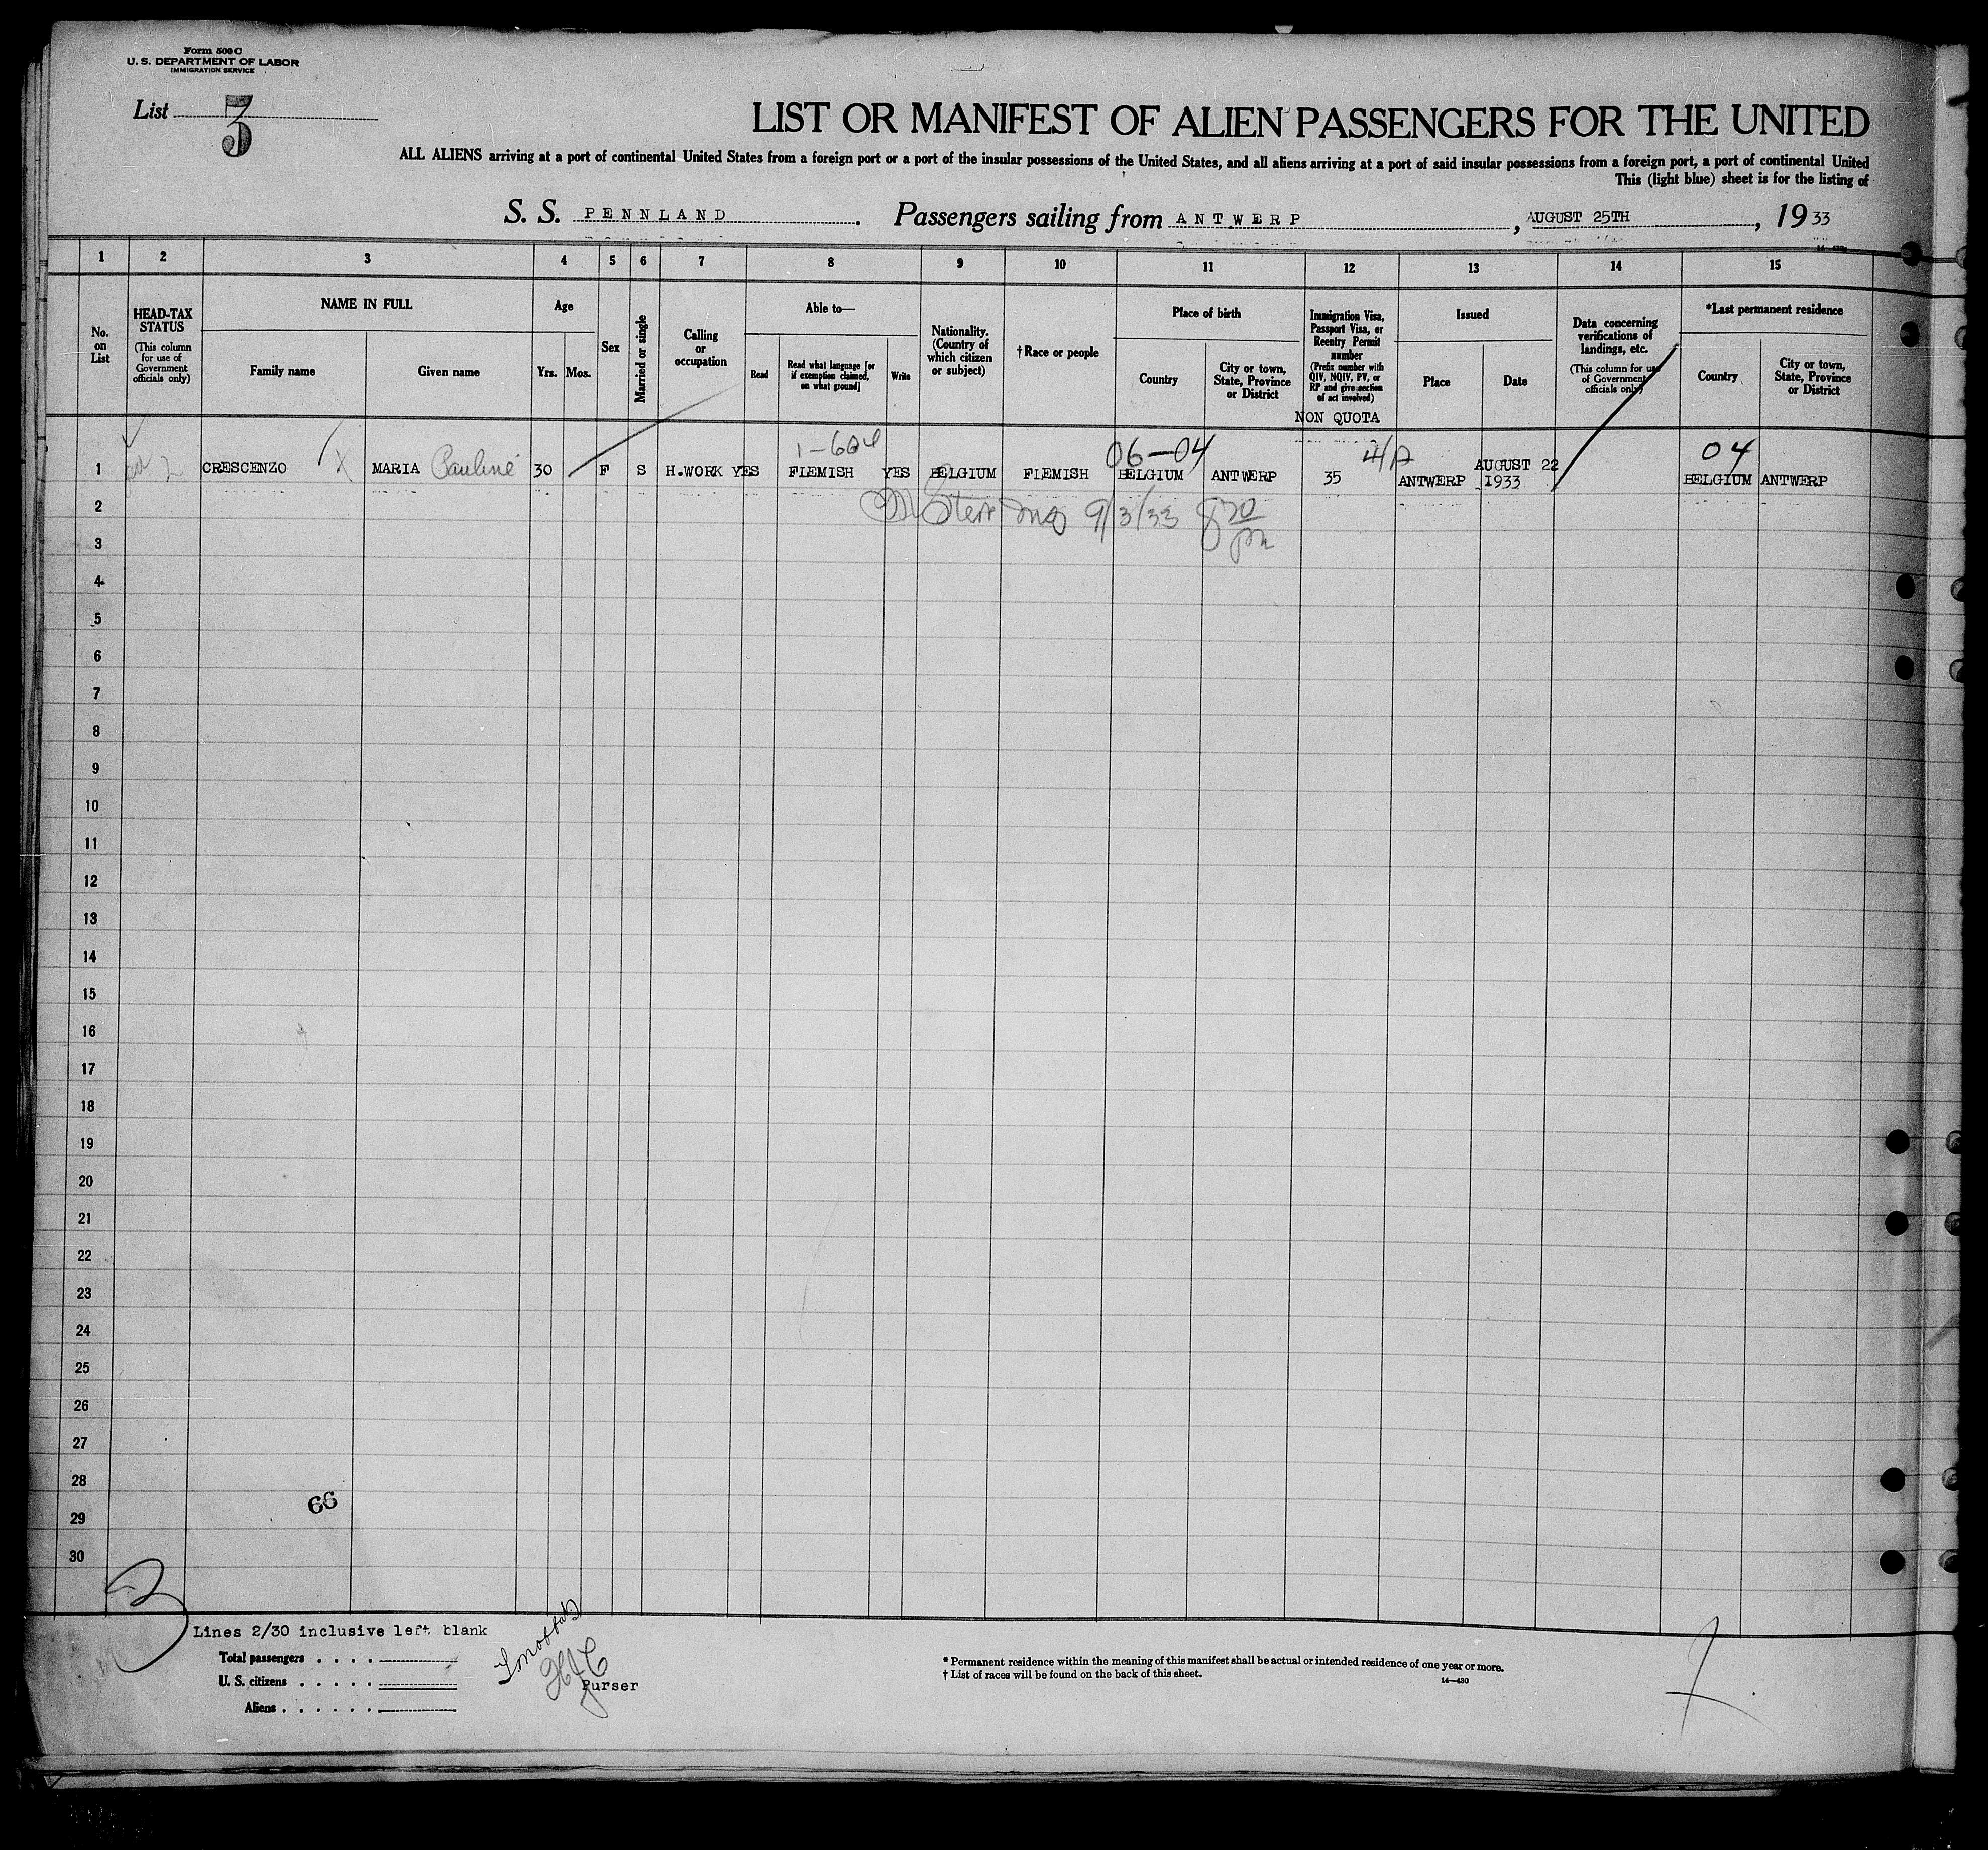 Form 500 C
U. S. DEPARTMENT OF LABOR
IMMIGRATION SERVICE
List 3
LIST OR MANIFEST OF ALIEN PASSENGERS FOR THE UNITED
ALL ALIENS arriving at a port of continental United States from a foreign port or a port of the insular possessions of the United States, and all aliens arriving at a port of said insular possessions from a foreign port, a port of continental United
This (light blue) sheet is for the listing of
S. S. PENNLAND. Passengers sailing from ANTWERP, AUGUST 25TH, 1933
1 2 3 4 5 6 7 8 9 10 11 12 13 14 15
No. on List
HEAD-TAX STATUS
(This column for use of Government officials only)
NAME IN FULL
Family name
Given name
Age
Yrs.
Mos.
Sex
Married or single
Calling or occupation
Able to—
Read
Read what language [or if exemption claimed, on what ground]
Write
Nationality. (Country of which citizen or subject)
†Race or people
Place of birth
Country
City or town, State, Province or District
Immigration Visa, Passport Visa, or Reentry Permit number
(Prefix number with QIV, NQIV, PV, or RP and give section of act involved)
Issued
Place
Date
Data concerning verifications of landings, etc.
(This column for use of Government officials only)
*Last permanent residence
Country
City or town, State, Province or District
NON QUOTA
06-04 4/A 04
1 CRESCENZO X MARIA Pauline 30 F S H.WORK YES FLEMISH YES BELGIUM FLEMISH BELGIUM ANTWERP 35 ANTWERP AUGUST 22 1933 BELGIUM ANTWERP
2 9/3/33 8 20
3 pm
4
5
6
7
8
9
10
11
12
13
14
15
16
17
18
19
20
21
22
23
24
25
26
27
28
66
29
30
Lines 2/30 inclusive left blank
Total passengers
U. S. citizens
Aliens
Purser
* Permanent residence within the meaning of this manifest shall be actual or intended residence of one year or more.
† List of races will be found on the back of this sheet.
14—430